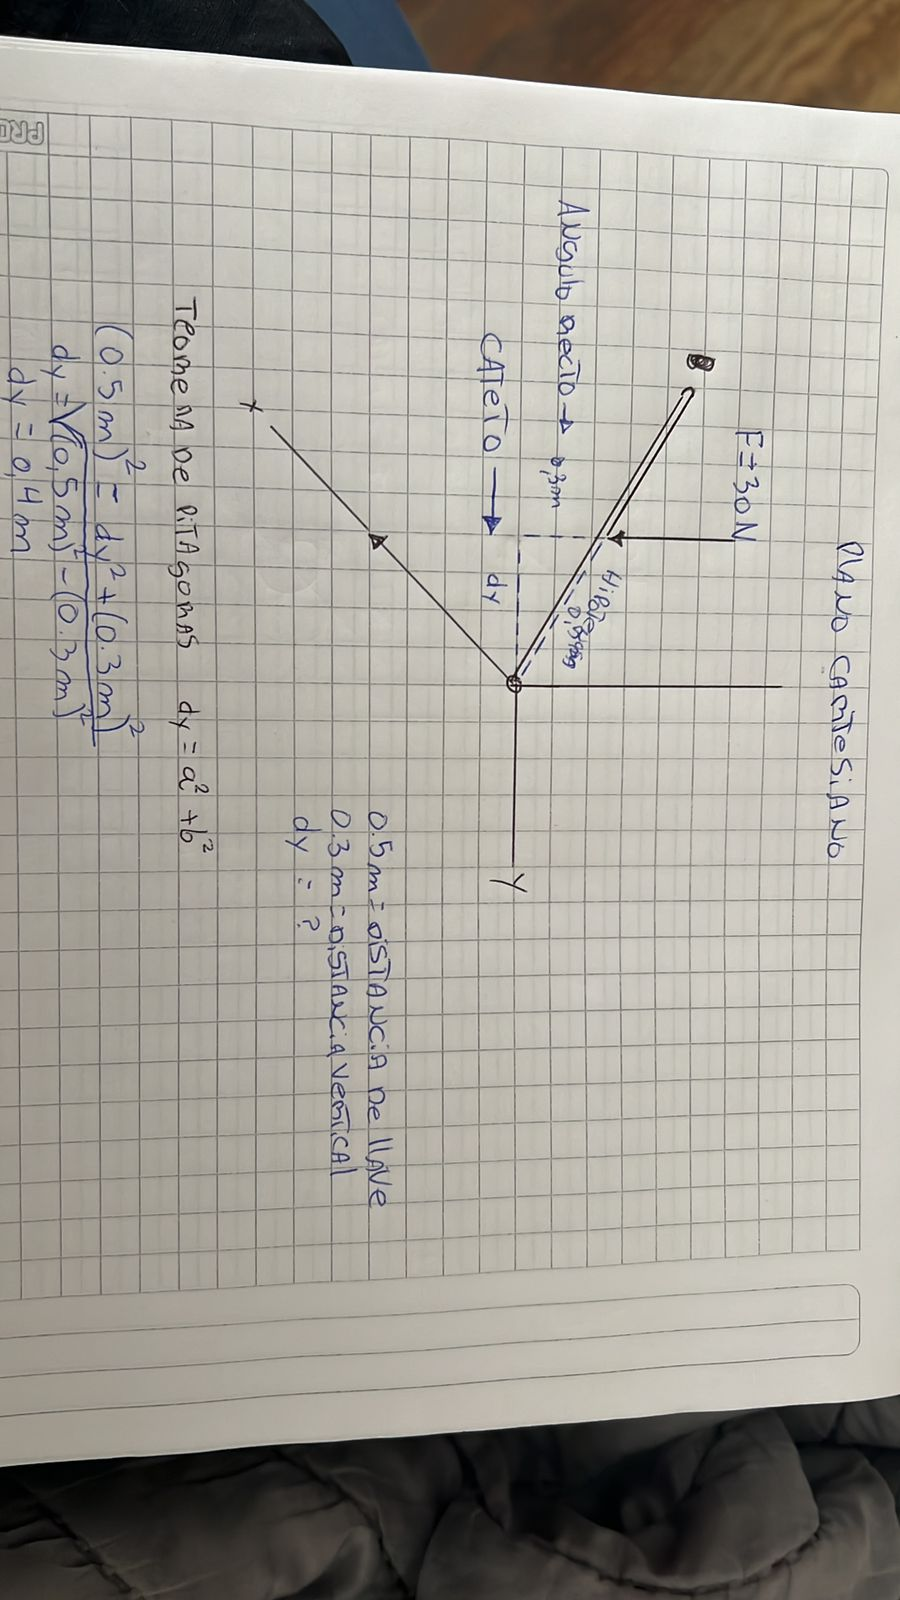 PLANO CARTESIANO
F=30N
B
Hipote
ANgulo recto → 0,3m
CATeTO → dy
Y
X
0.5m = DiSTANCiA De llAVe
0.3m = DiSTANCiA VeRTiCAl
dy = ?
TeoRemA De PiTAgoRAS dy = a² + b²
(0.5m)² = dy² + (0.3m)²
dy = √(0,5m)² - (0.3m)²
dy = 0,4m